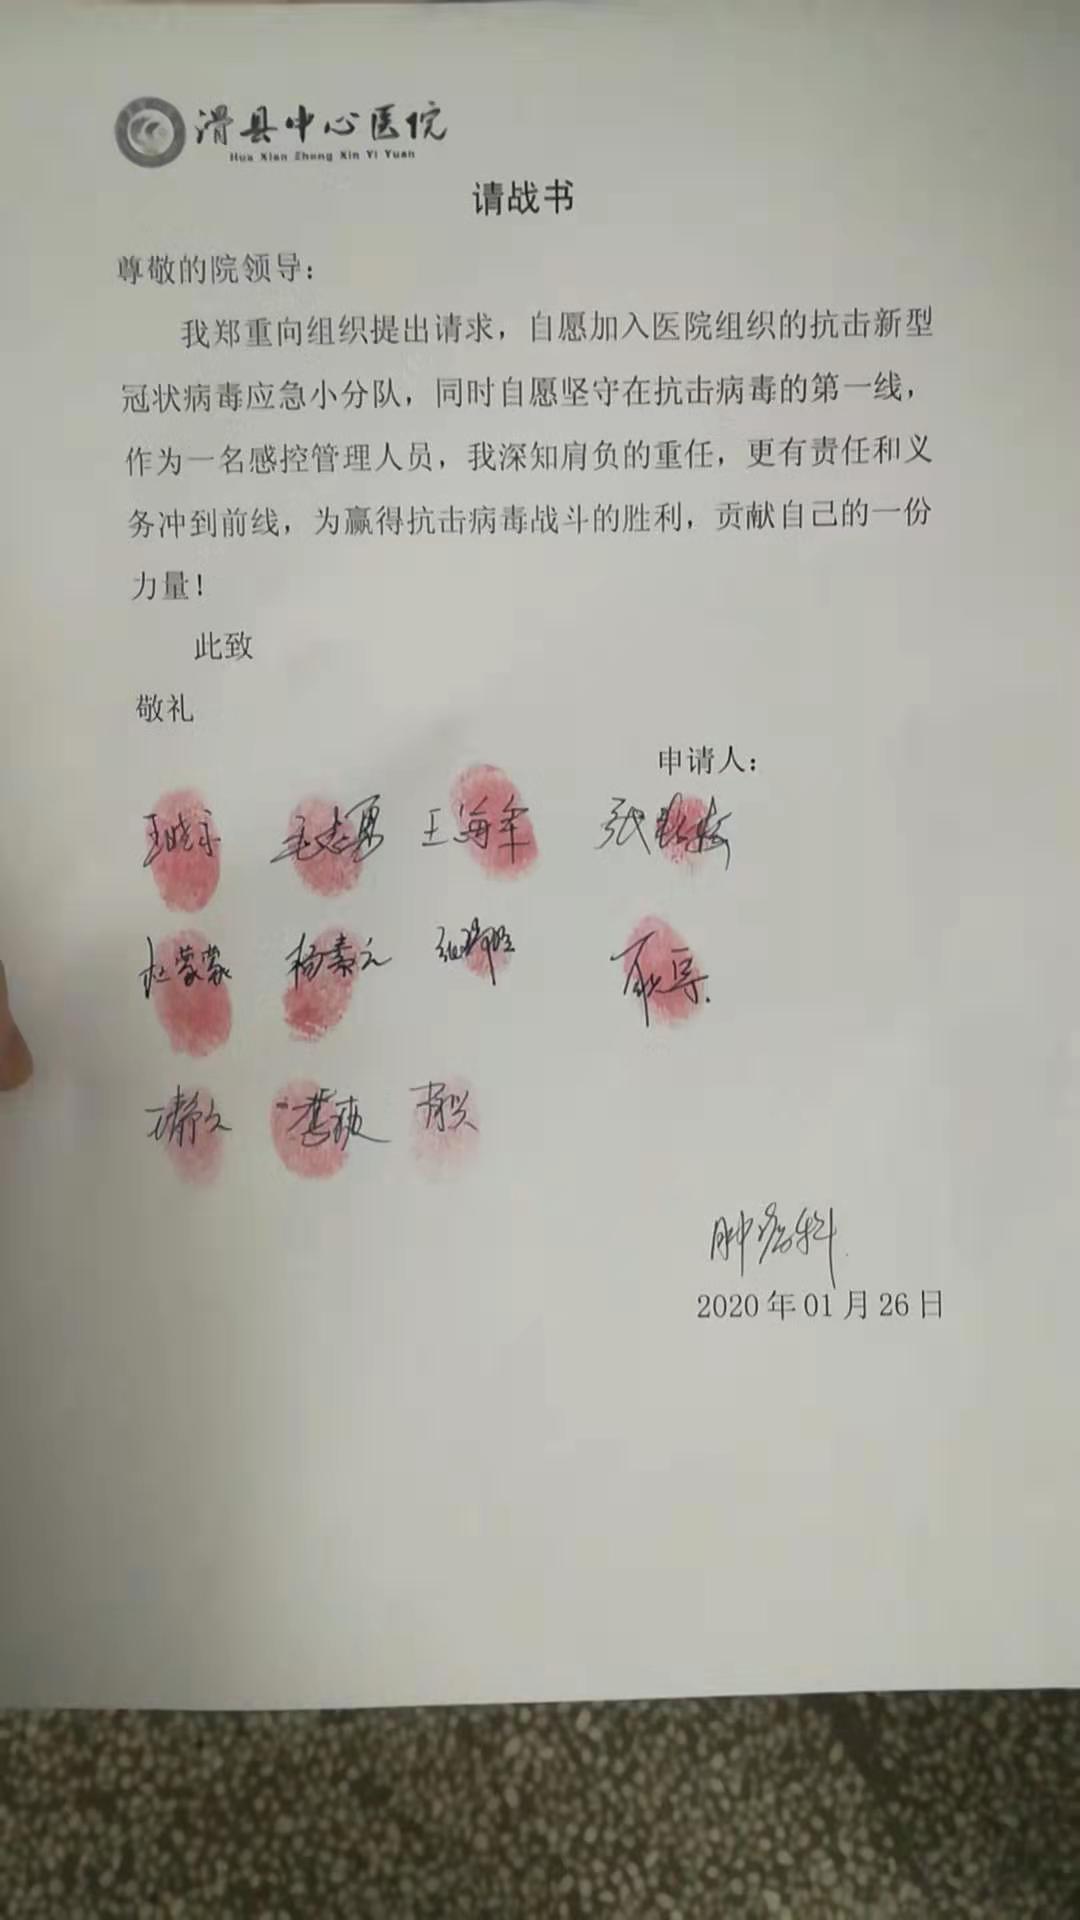 滑县中心医院
Hua Xian Zhong Xin Yi Yuan
请战书
尊敬的院领导：
我郑重向组织提出请求，自愿加入医院组织的抗击新型
冠状病毒应急小分队，同时自愿坚守在抗击病毒的第一线，
作为一名感控管理人员，我深知肩负的重任，更有责任和义
务冲到前线，为赢得抗击病毒战斗的胜利，贡献自己的一份
力量！
此致
敬礼
申请人：
毛志勇 王海军
赵蒙蒙 杨素元
肿瘤科
2020年01月26日